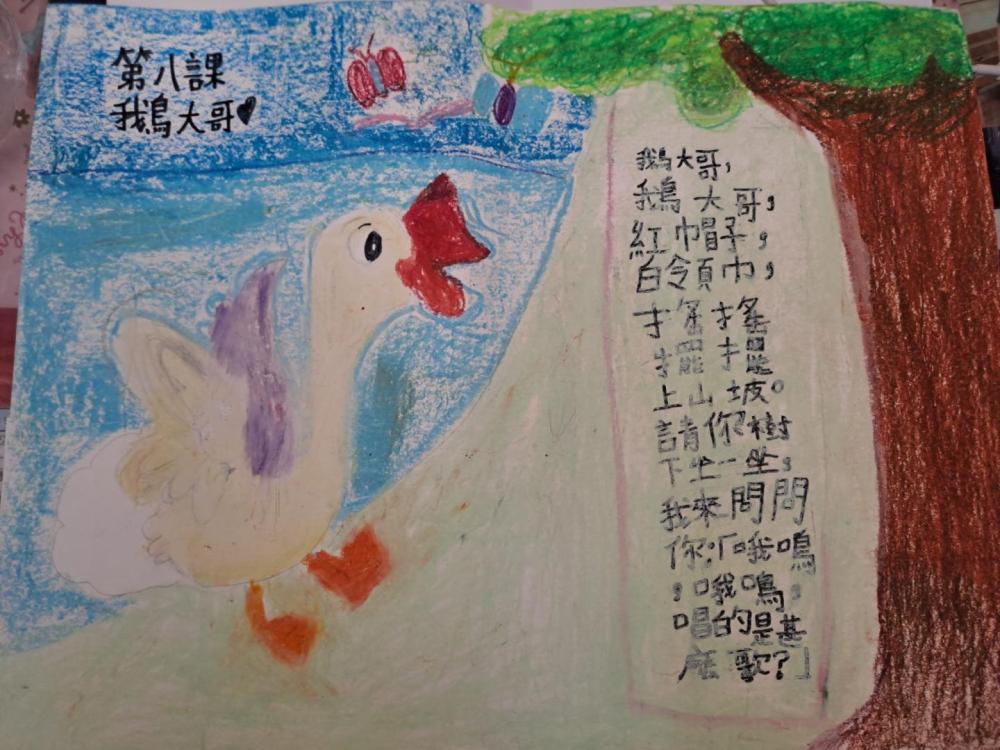 第八課
我鳥大哥
鵝大哥，
鵝大哥，
紅帽子，
白領巾，
搖搖
擺擺
上山坡。
請你樹
下坐一坐，
我來問問
你：「哦鳴
，哦鳴，
唱的是甚
麼歌？」